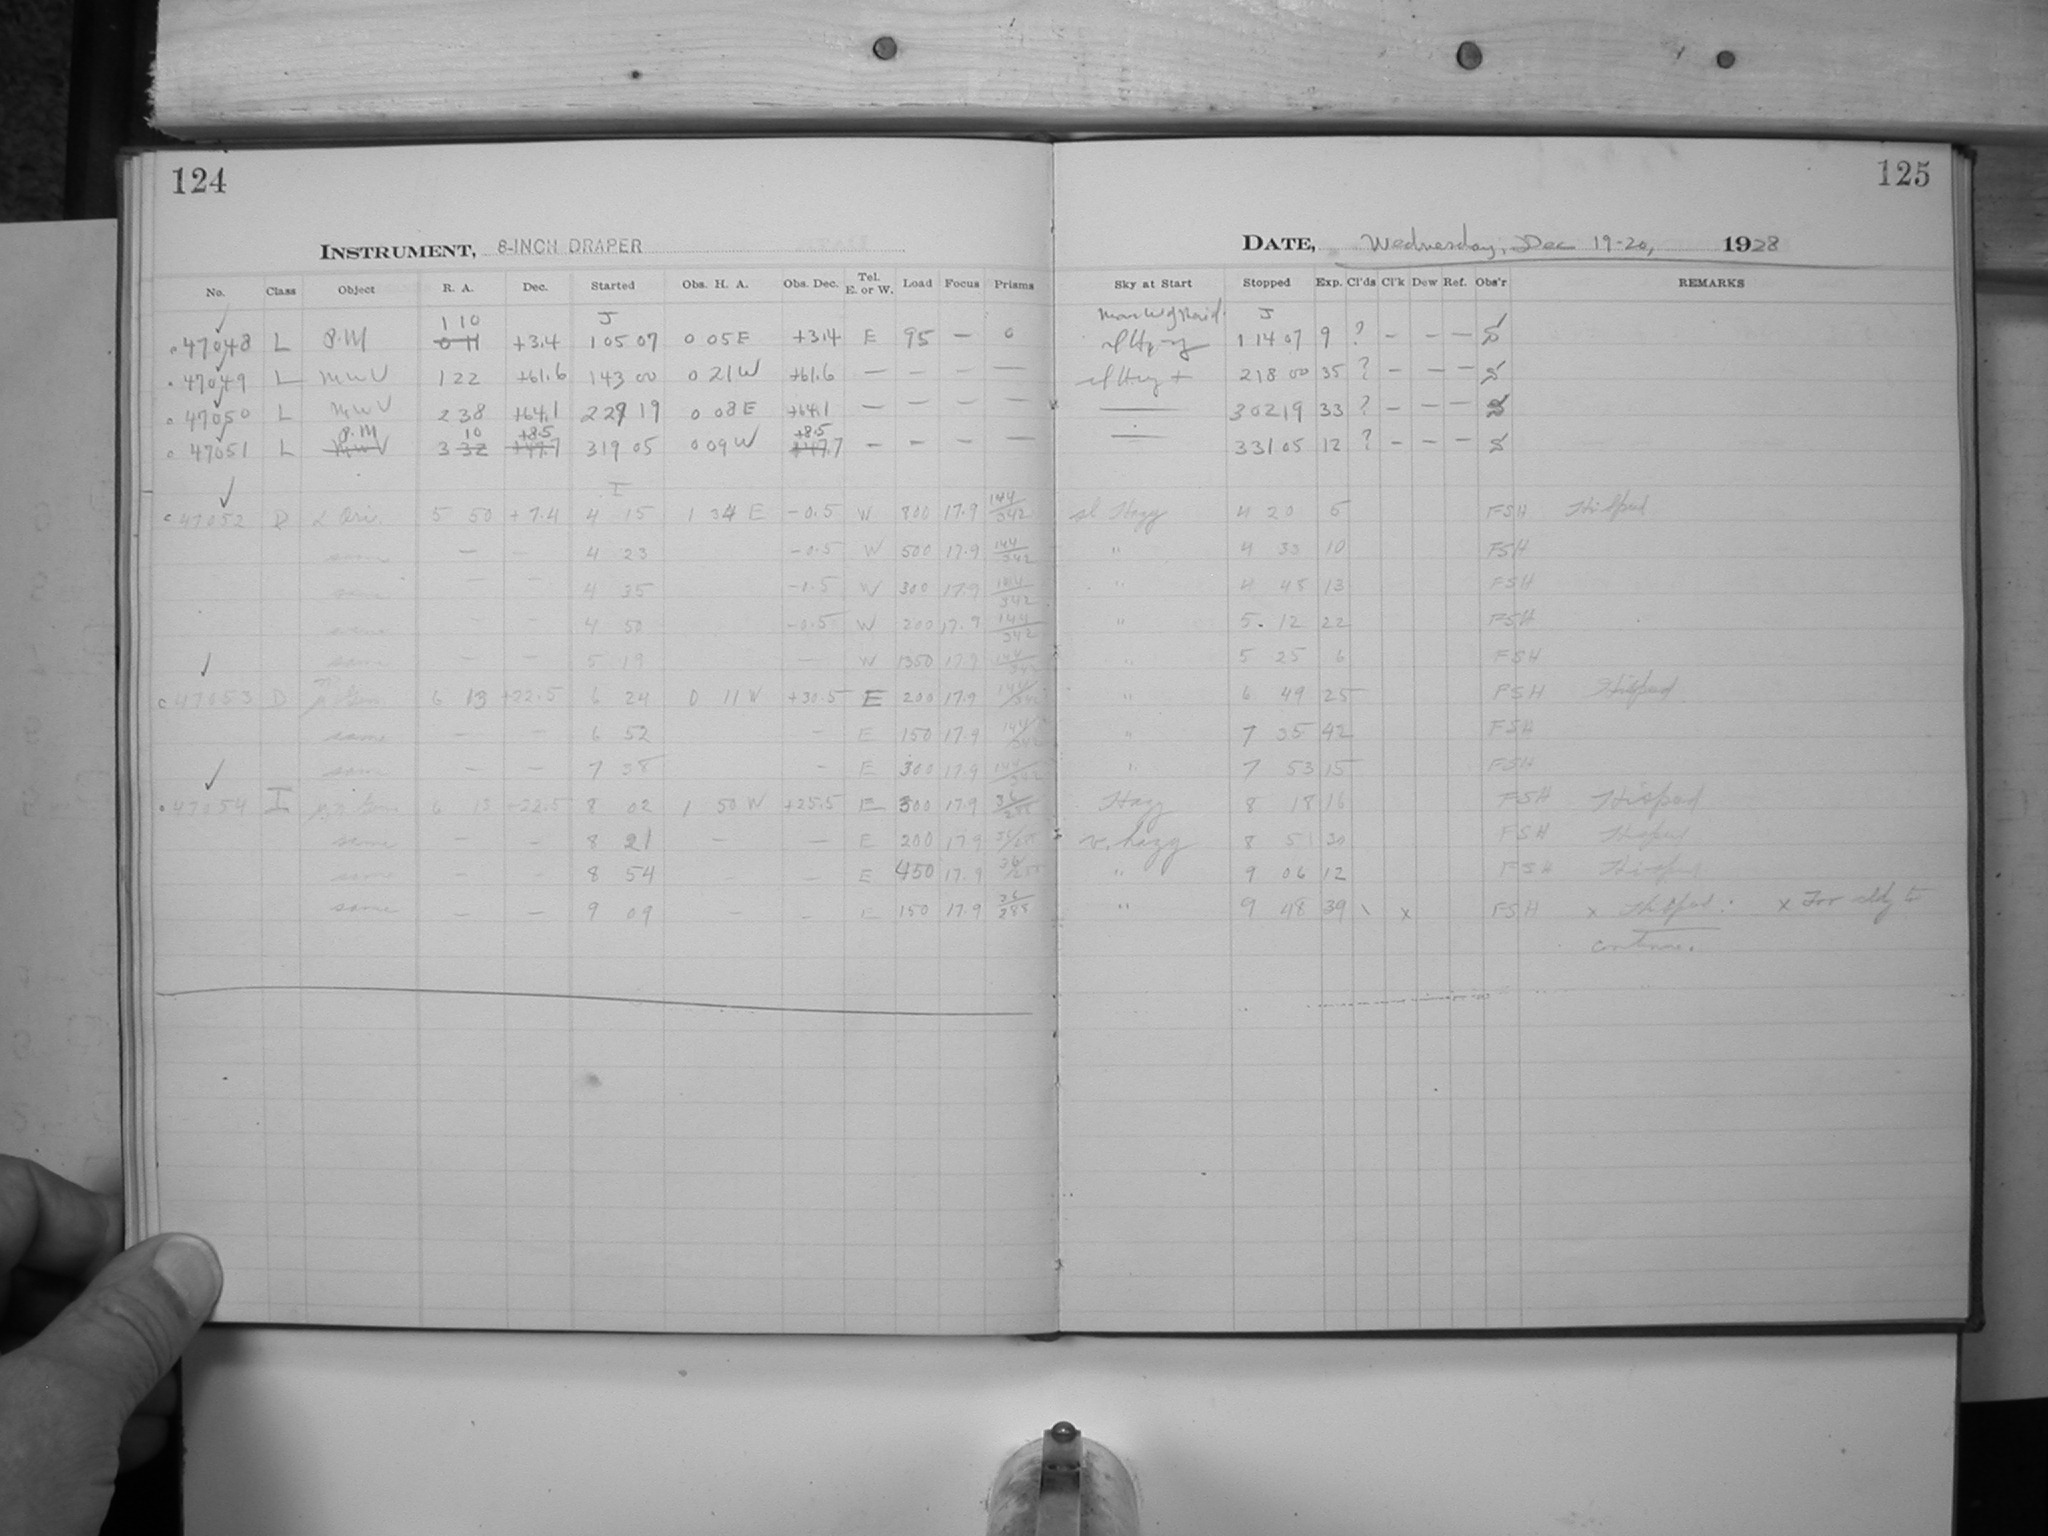 124
INSTRUMENT, 8-INCH DRAPER
No. Class Object R. A. Dec. Started Obs. H. A. Obs. Dec. Tel. E. or W. Load Focus Prisms
1 10 J
47048 L P.M 0 11 +3.4 1 05 07 0 05 E +3.4 E 95 — 0
47049 L MWV 1 22 +61.6 1 43 00 0 21 W +61.6 — — — —
47050 L MWV 2 38 +64.1 2 29 19 0 08 E +64.1 — — — —
P.M 10 +8.5 +8.5
47051 L MWV 3 32 +47.7 3 19 05 0 09 W +47.7 — — — —
I
47052 D α Oris 5 50 +7.4 4 15 1 34 E -0.5 W 800 17.9 144/342
same — — 4 23 -0.5 W 500 17.9 144/342
same — — 4 35 -0.5 W 300 17.9 144/342
same — — 4 50 -0.5 W 200 17.9 144/342
same — — 5 19 — W 1350 17.9 144/342
47053 D Gem 6 13 +22.5 6 24 0 11 W +30.5 E 200 17.9 144/342
same — — 6 52 — E 150 17.9 144/342
same — — 7 38 — E 300 17.9 144/342
47054 I Gem 6 13 +22.5 8 02 1 50 W +25.5 E 300 17.9 36/288
same — — 8 21 — — E 200 17.9
same — — 8 54 — — E 450 17.9
same — — 9 09 — — E 150 17.9 36/288
125
DATE, Wednesday, Dec 19-20, 1928
Sky at Start Stopped Exp. Cl'ds Cl'k Dew Ref. Obs'r REMARKS
J
1 14 07 9 ? — — —
sl Hzy + 2 18 00 35 ? — — —
— 3 02 19 33 ? — — —
— 3 31 05 12 ? — — —
sl Hazy 4 20 5 FSH
" 4 33 10 FSH
" 4 48 13 FSH
" 5 12 22 FSH
" 5 25 6 FSH
" 6 49 25 FSH
" 7 35 42 FSH
" 7 53 15 FSH
Hazy 8 18 16 FSH
v. hazy 8 51 30 FSH
" 9 06 12 FSH
" 9 48 39 \ x FSH x x Too cldy to
continue.